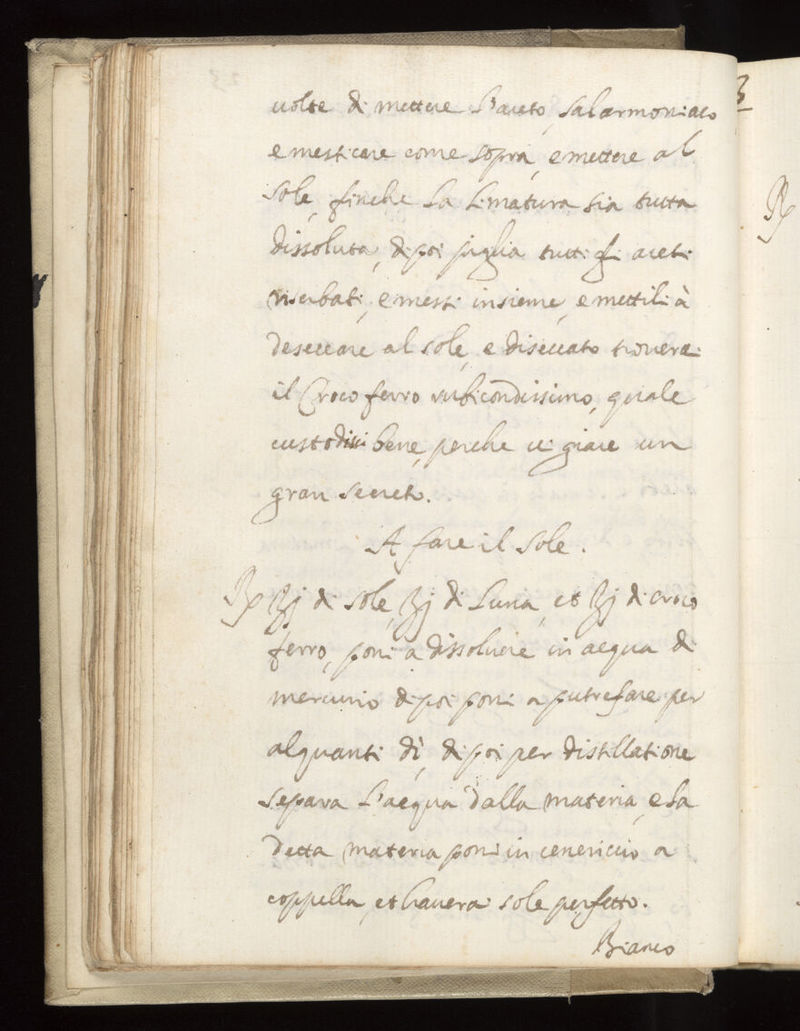 uolte di mettere l'aceto, salarmoniaco
e mesticare come sopra, e mettere al
sole, finche la limatura sia tutta
dissoluta, dipoi piglia tutti gli aceti
riserbati, e messi insieme, e mettili à
deseccare al sole, e diseccato trouerai
il Croco ferro rubicondissimo, quale
custodisci bene, perche ui giace un
gran secreto.
A fare il Sole.
℞ ℥j di sole, ℥j di Luna, et ℥j di croco
ferro, poni a dissoluere in acqua di
mercurio dipoi poni a putrefare per
alquanti dì, dipoi per distillatione
separa l'acqua dalla materia, e la
detta materia poni in cenericcio a
coppella, et hauerai sole perfetto.
Bianco
3
℞